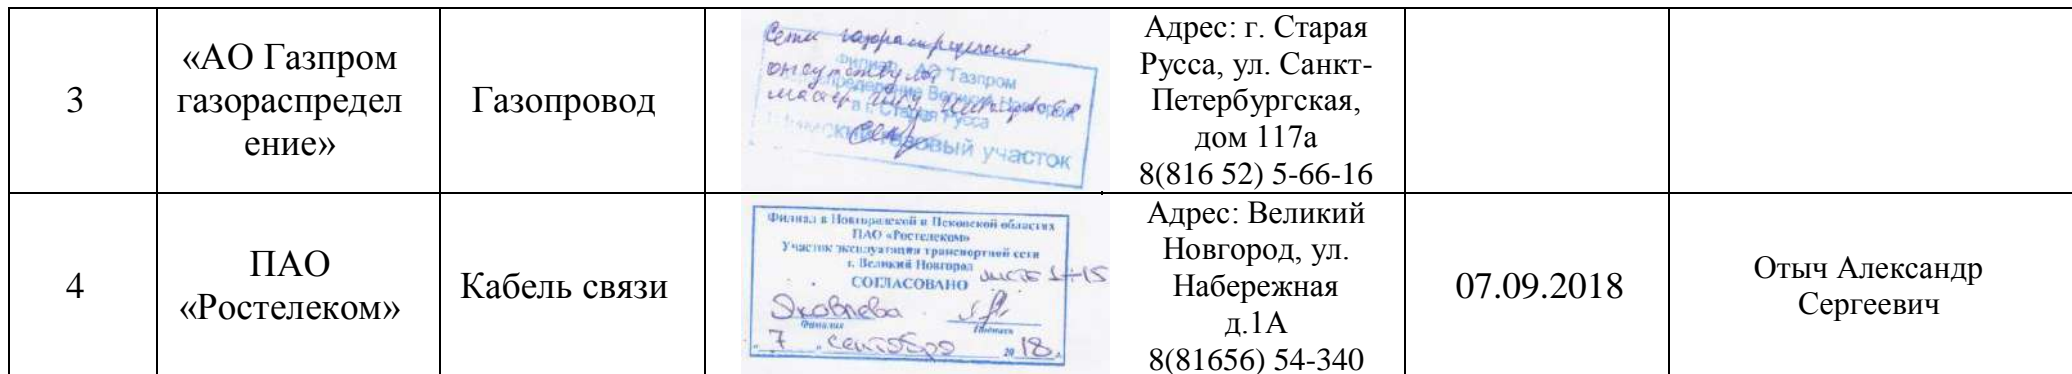 3
«АО Газпром
газораспредел
ение»
Газопровод
Сети газораспределения
отсутствуют
Филиал АО Газпром
мастер
в г. Старая Русса
участок
Адрес: г. Старая
Русса, ул. Санкт-
Петербургская,
дом 117а
8(816 52) 5-66-16
4
ПАО
«Ростелеком»
Кабель связи
Филиал в Новгородской и Псковской областях
ПАО «Ростелеком»
Участок эксплуатации транспортной сети
г. Великий Новгород
лист 1÷15
СОГЛАСОВАНО
Яковлева
Фамилия
Подпись
„ 7 „ сентября 20 18 г.
Адрес: Великий
Новгород, ул.
Набережная
д.1А
8(81656) 54-340
07.09.2018
Отыч Александр
Сергеевич